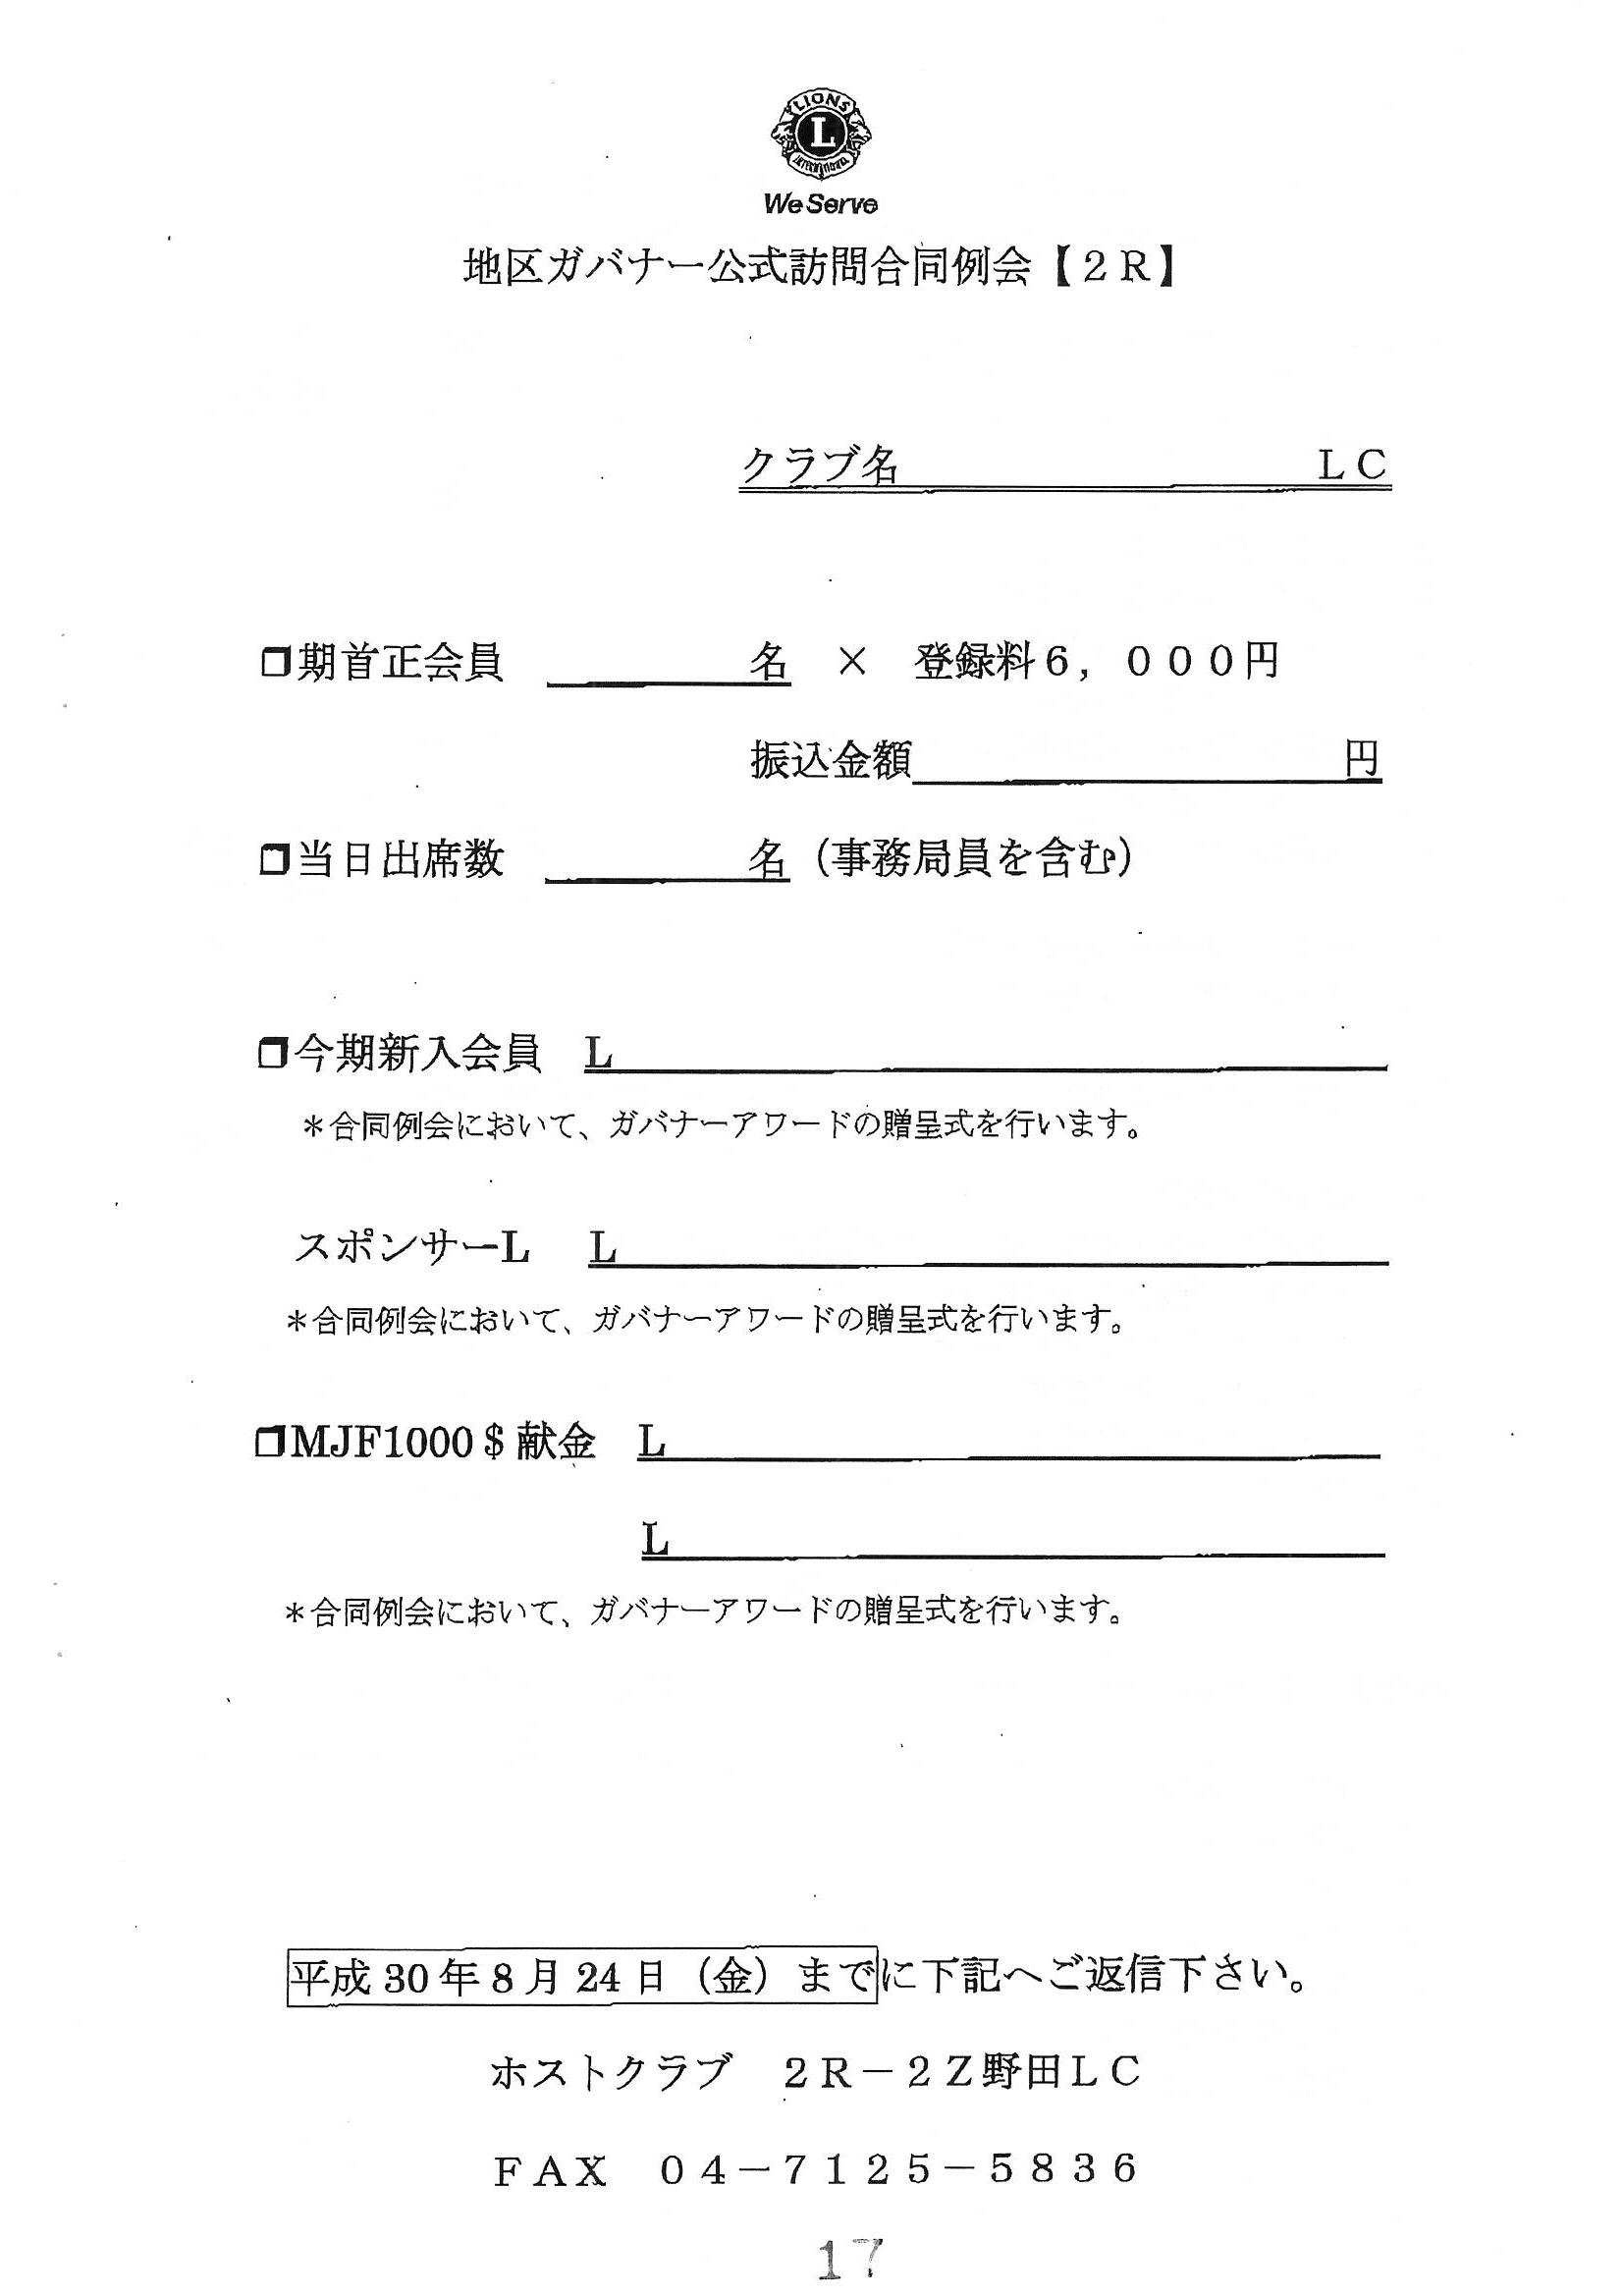 LIONS
L
INTERNATIONAL
We Serve
地区ガバナー公式訪問合同例会【２Ｒ】
クラブ名 ＬＣ
❒期首正会員 名 × 登録料６，０００円
振込金額 円
❒当日出席数 名（事務局員を含む）
❒今期新入会員 L
＊合同例会において、ガバナーアワードの贈呈式を行います。
スポンサーL L
＊合同例会において、ガバナーアワードの贈呈式を行います。
❒MJF1000＄献金 L
L
＊合同例会において、ガバナーアワードの贈呈式を行います。
平成 30 年 8 月 24 日（金）までに下記へご返信下さい。
ホストクラブ ２Ｒ－２Ｚ野田ＬＣ
ＦＡＸ ０４－７１２５－５８３６
17